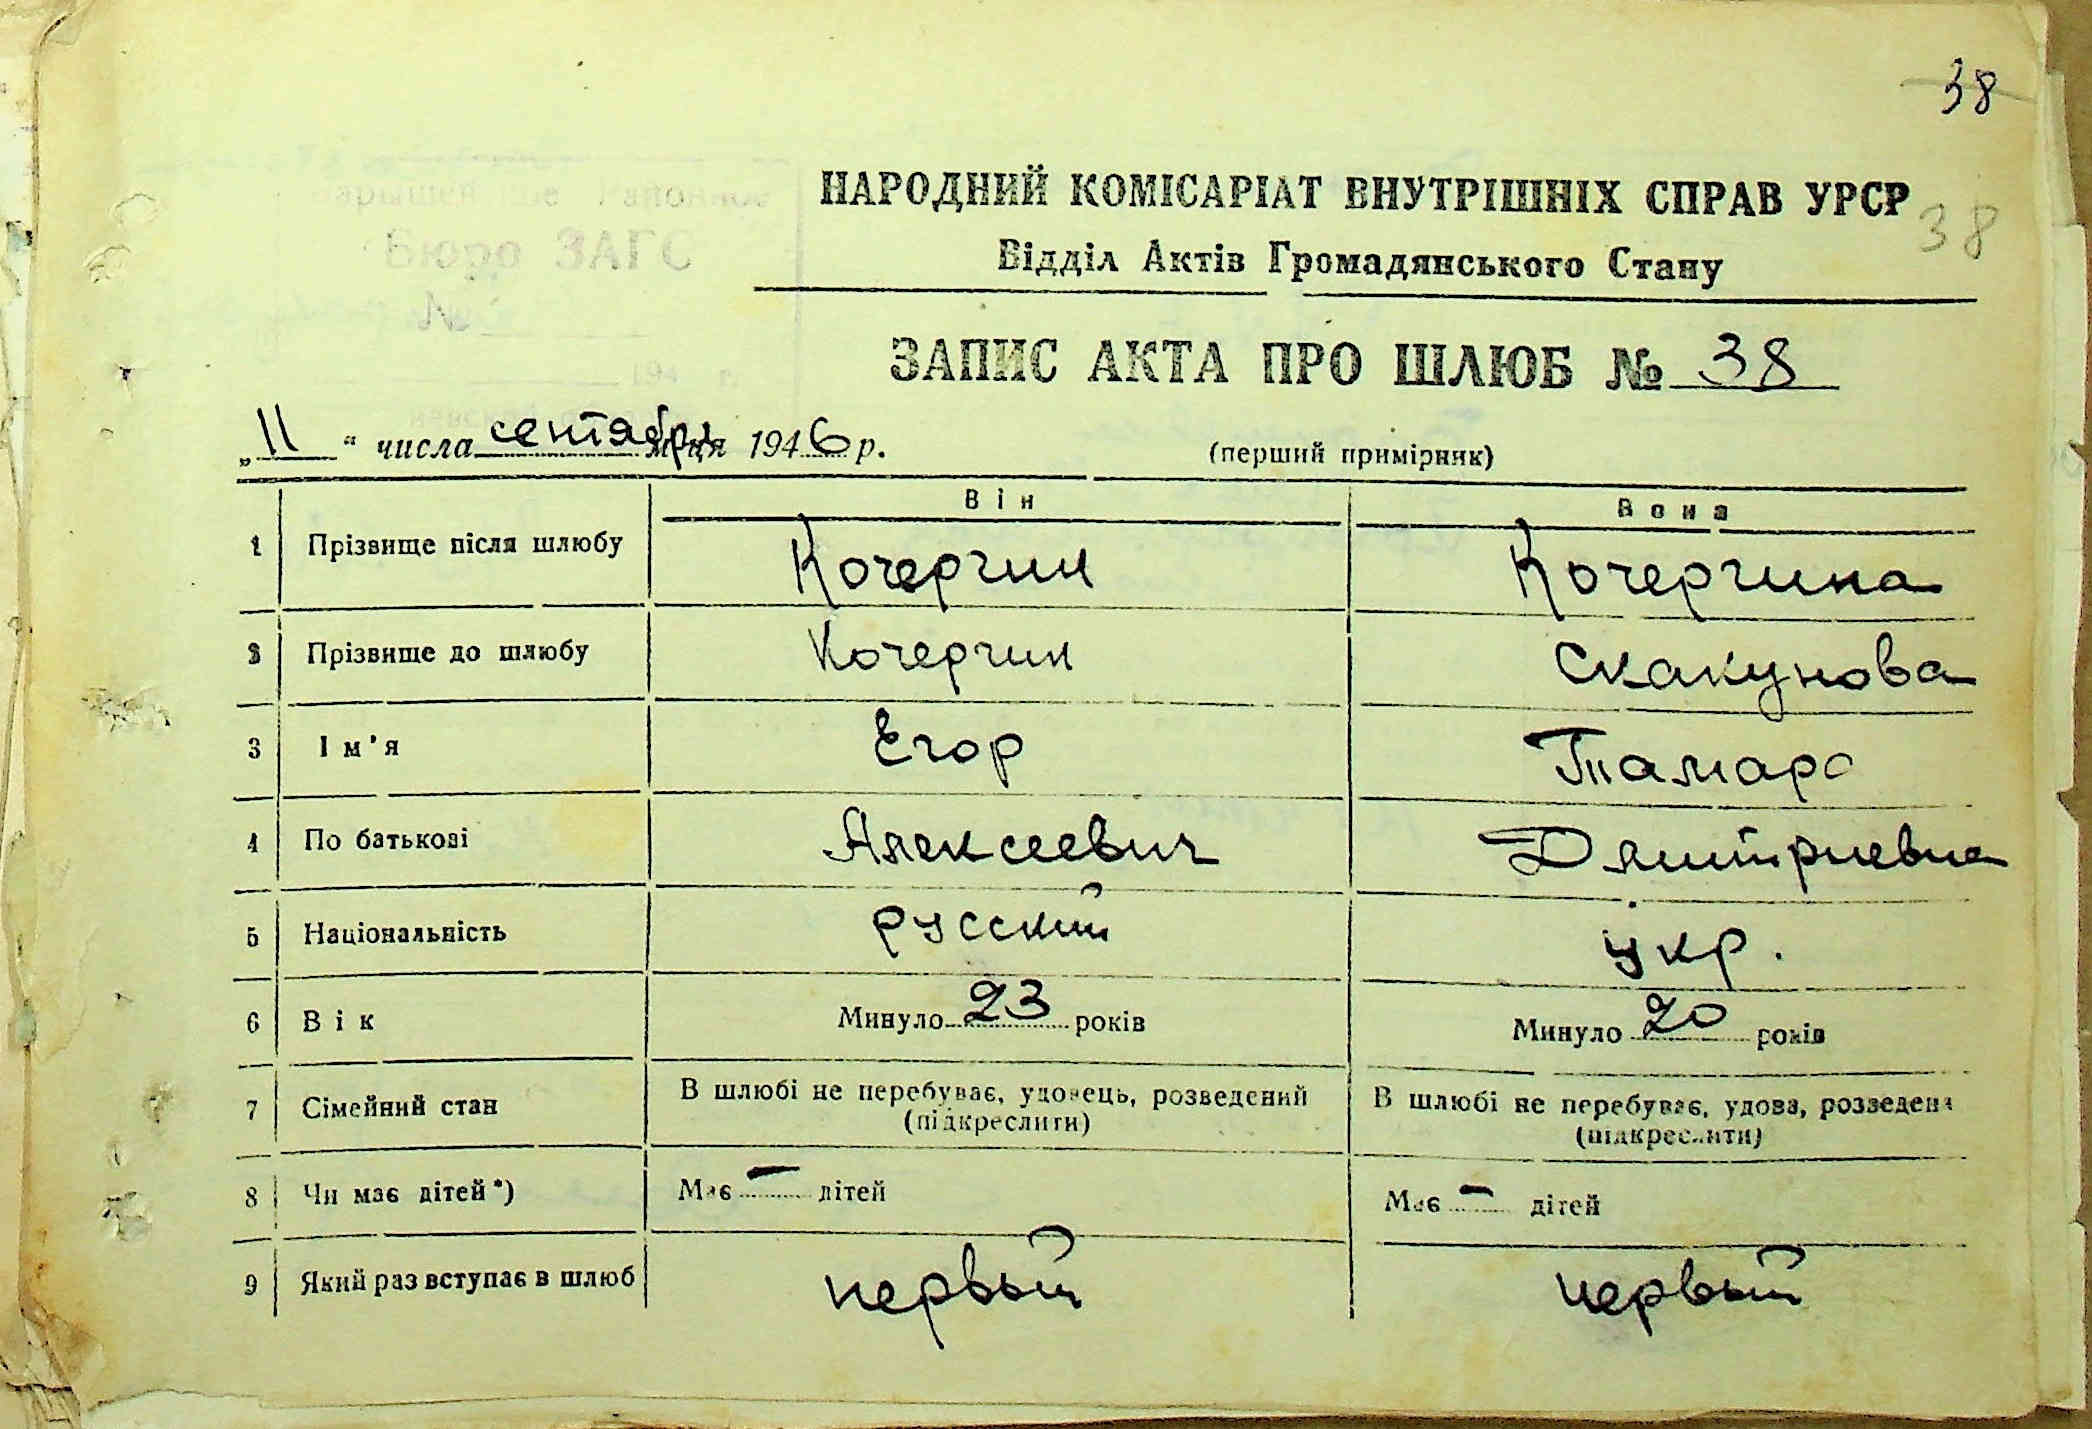 38
НАРОДНИЙ КОМІСАРІАТ ВНУТРІШНІХ СПРАВ УРСР
38
Відділ Актів Громадянського Стану
ЗАПИС АКТА ПРО ШЛЮБ № 38
„11“ числа сентября м-ця 1946 р. (перший примірник)
Він Вона
1 Прізвище після шлюбу Кочергин Кочергина
2 Прізвище до шлюбу Кочергин Скакунова
3 Ім'я Егор Тамара
4 По батькові Алексеевич Дмитриевна
5 Національність русский укр.
6 Вік Минуло 23 років Минуло 20 років
7 Сімейний стан В шлюбі не перебуває, удовець, розведений В шлюбі не перебуває, удова, розведена
(підкреслити) (підкреслити)
8 Чи має дітей*) Має – дітей Має – дітей
9 Який раз вступає в шлюб первый первый
Бюро ЗАГС
№
194 г.